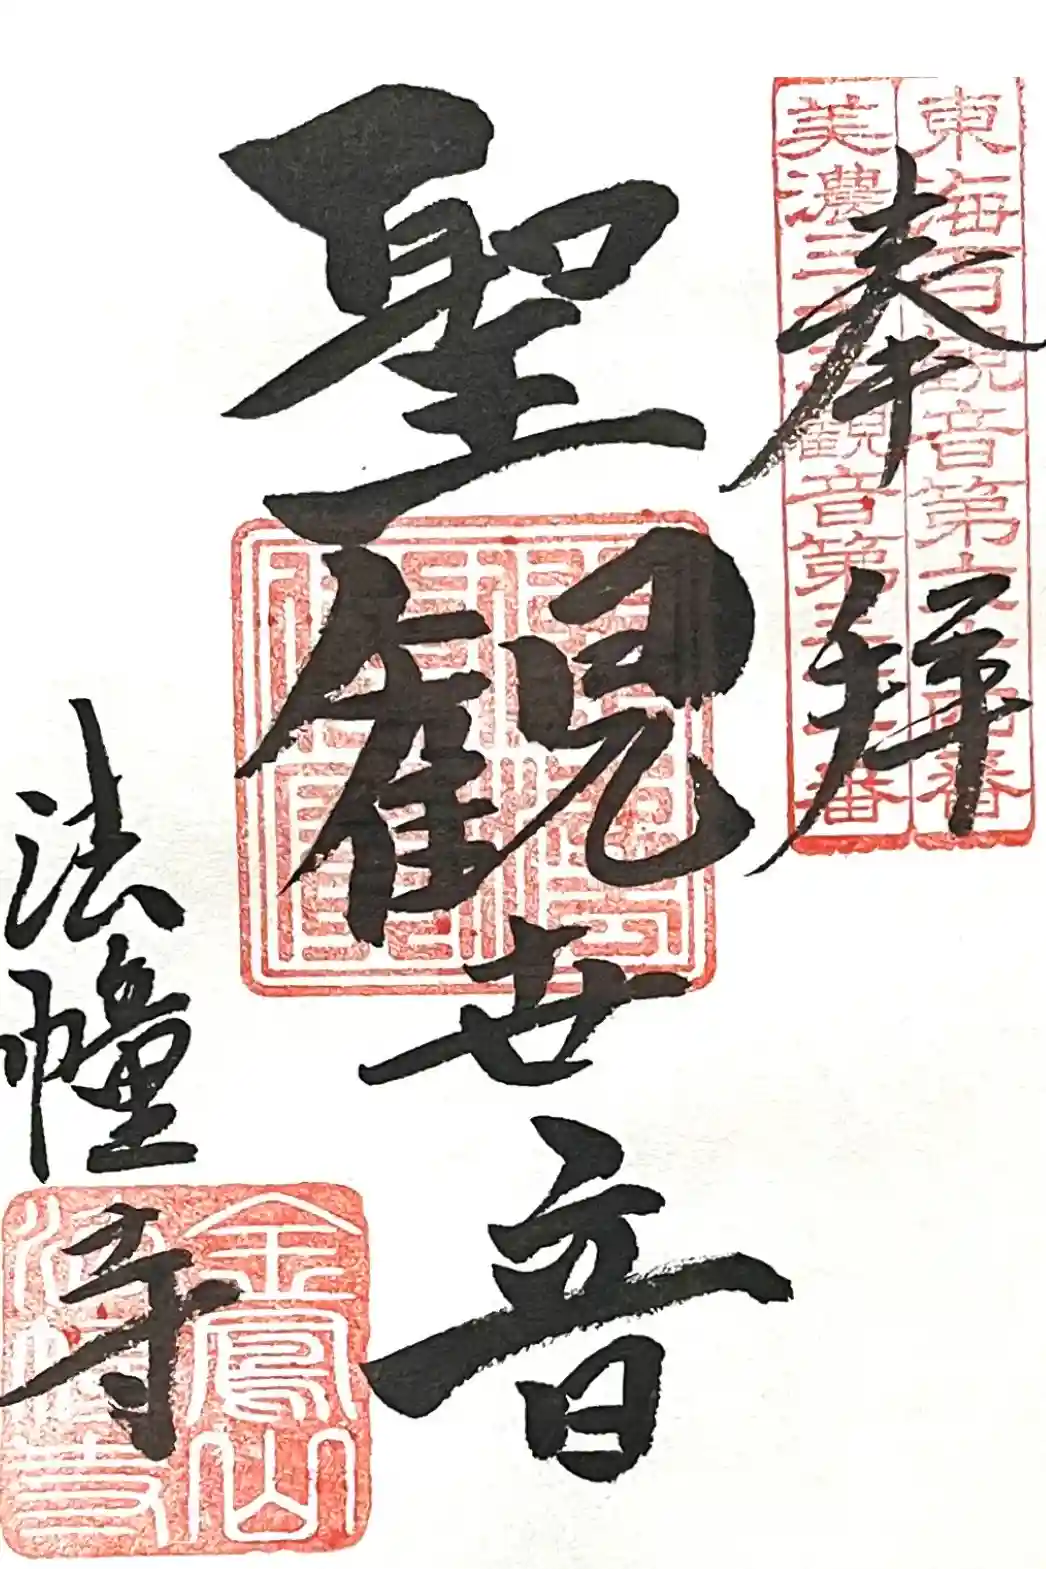 奉拝
東海百観音第
美濃三十三観音第
番
聖観世音
法幢寺
金鳳山
法幢寺